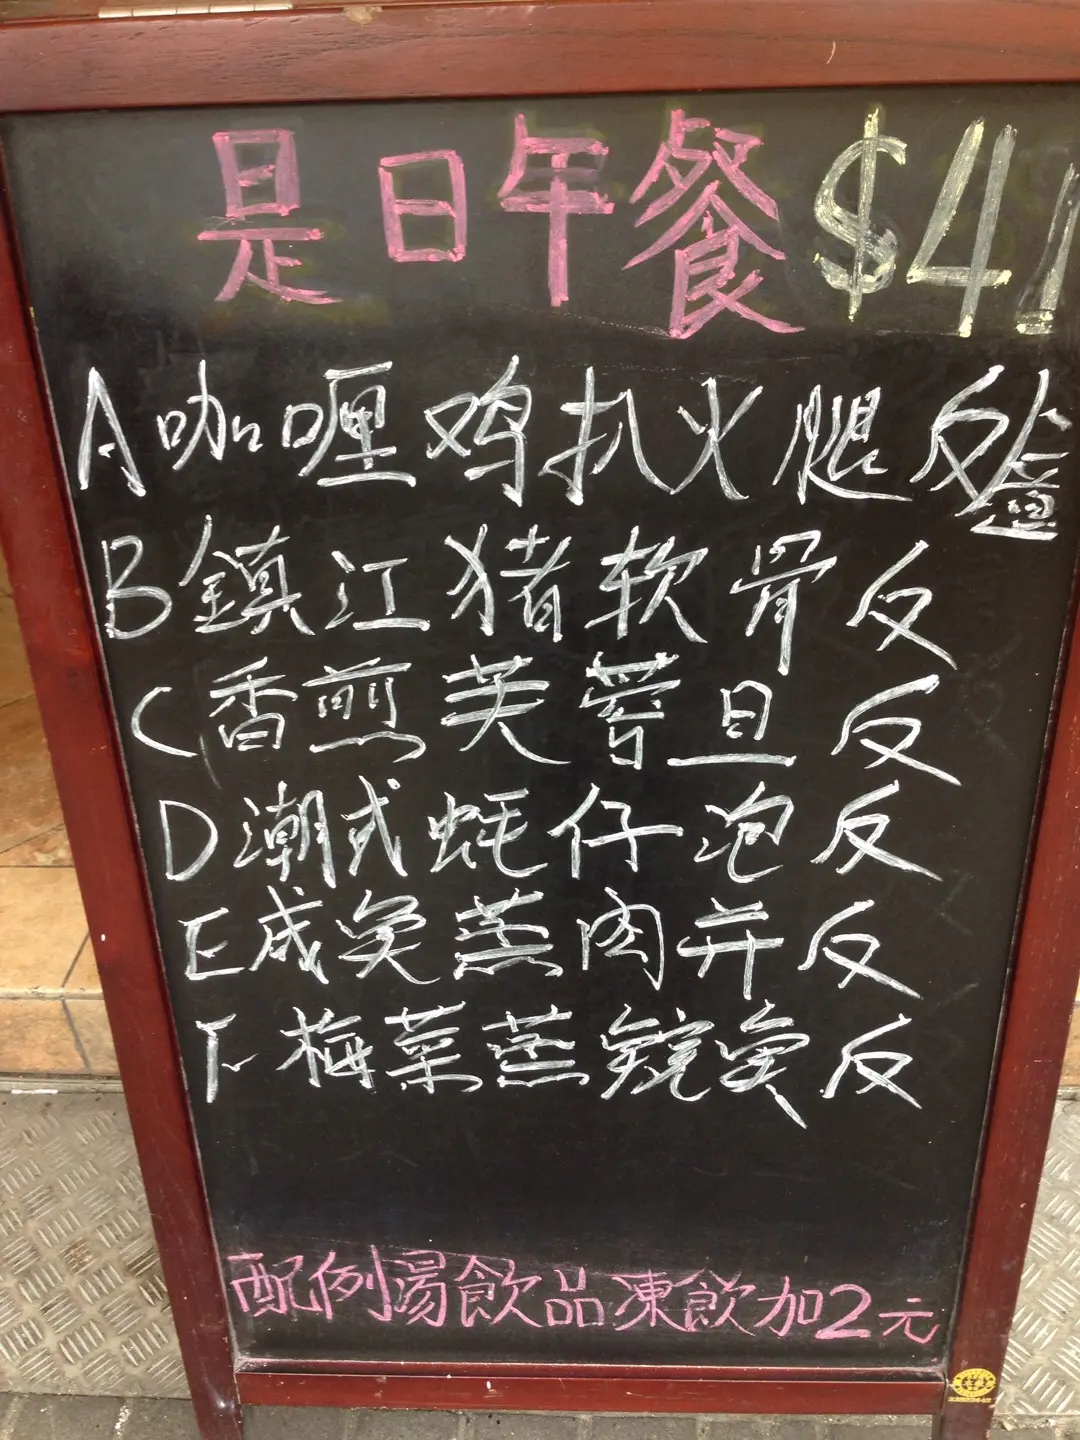 是日午餐 $41
A 咖喱鸡扒火腿反盒
B 鎮江猪软骨反
C 香煎芙蓉旦反
D 潮式蚝仔泡反
E 咸臾蒸肉并反
F 梅菜蒸鲩臾反
配例湯飲品凍飲加2元